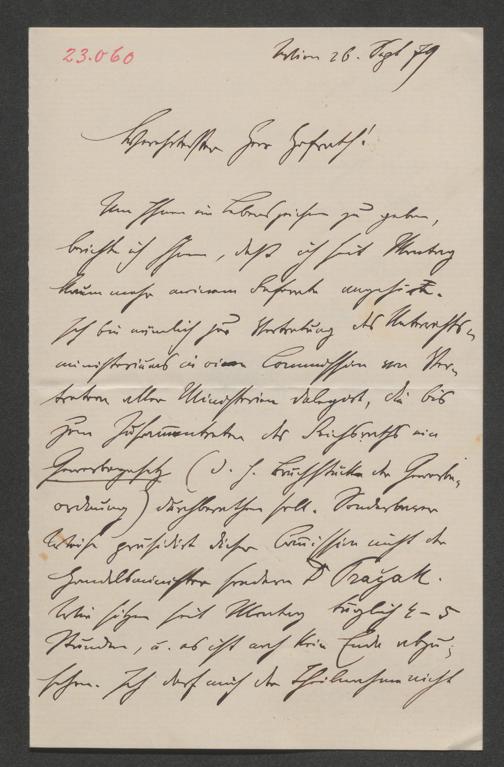 23.060
Wien 26. Sept 79
Verehrtester Herr Hofrath!
Um Ihnen ein Lebenszeichen zu geben,
berichte ich Ihnen, daß ich seit Montag
kaum mehr meinem Referate angehöre.
Ich bin nämlich zur Vertretung des Unterrichts-
ministeriums in eine Commission von Ver-
tretern aller Ministerien delegirt, die bis
zum Zusammentreten des Reichsraths ein
Gewerbegesetz (d. h. Bruchstücke der Gewerbe-
ordnung) durchberathen soll. Sonderbarer
Weise präsidirt dieser Com̅ission nicht der
Handelsminister sondern Dr Pražak.
Wir sitzen seit Montag täglich 4–5
Stunden, u. es ist noch kein Ende abzu-
sehen. Ich darf mich der Theilnahme nicht